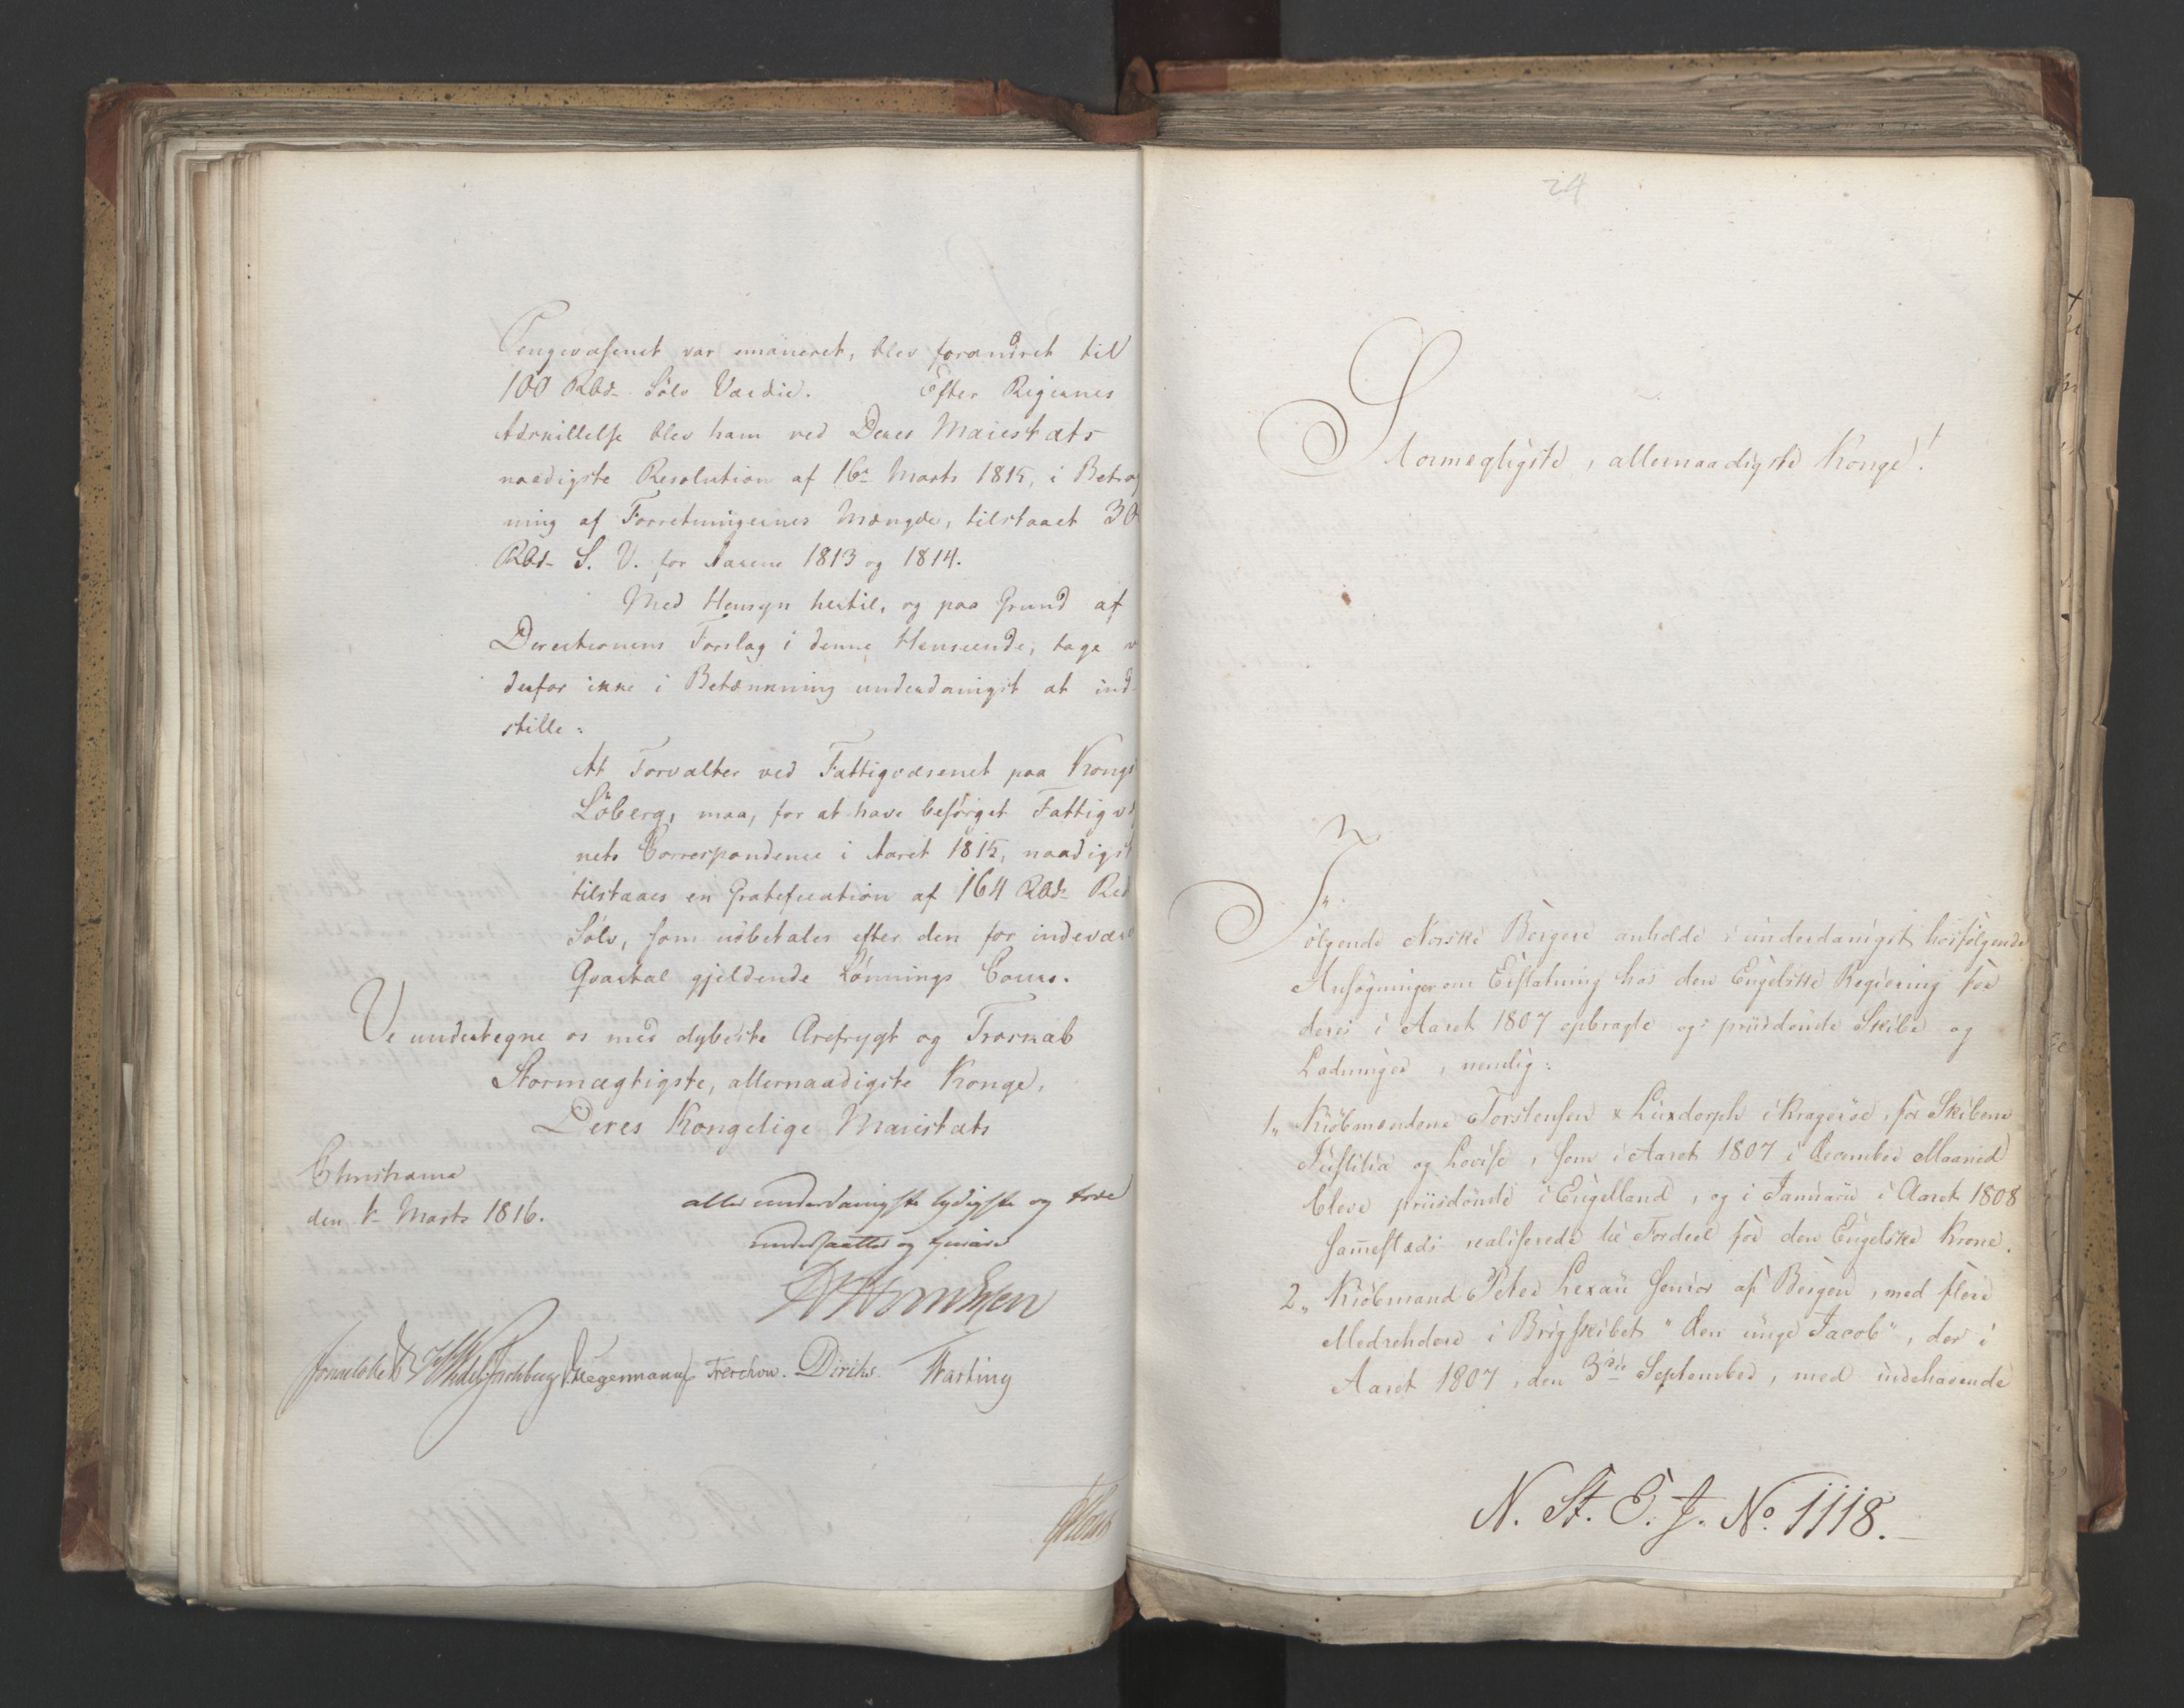 Pengevæsenet var emaneret, blev forandret til
100 Rbd. Sölv Værdie. Efter Rigernes
Adskillelse blev ham ved Deres Maiestæts
naadigste Resolution af 16de Marts 1815, i Betrag
ning af Forretningernes Mængde, tilstaaet 30
Rbd. S. V. for Aarene 1813 og 1814.
Med Hensyn hertil, og paa Grund af
Directionens Forslag i denne Henseende, tage
derfor ikke i Betænkning underdanigst at ind-
stille:
At Forvalter ved Fattigvæsenet paa Kongs
Löberg, maa, for at have besörget Fattigvæ
nets Correspondence i Aaret 1815, naadigst
tilstaaes en Gratification af 164 Rbd.
Sölv, som udbetales efter den for indevær
Qvartal gjeldende Lönnings Cours.
Vi undertegne os med dybeste Ærefrygt og Troskab
Stormægtigste, allernaadigste Konge,
Deres Kongelige Maiestæts
Christiania
den 5 Marts 1816.
allerunderdanigste lydigste og troe
undersaatter og tienere
Sommerhielm Wedel Jarlsberg Hegermann Treschow. Diriks. Fasting
24
Stormægtigste, allernaadigste Konge!
Fölgende Norske Borgere anholde i underdanigst hosfölgende
Ansögninger om Erstatning hos den Engelske Regiering for
deres i Aaret 1807 opbragte og priisdömte Skibe og
Ladninger, nemlig:
1, Kiöbmændene Torstensen & Lüxdorph i Krageröe, for Skibene
Justitia og Lovise, som i Aaret 1807 i December Maaned
bleve priisdömte i Engelland, og i Januarii i Aaret 1808
sammestæds realiserede til Fordeel for den Engelske Krone.
2, Kiöbmand Peter Lexau senior af Bergen, med flere
Medrehdere i Brigskibet "den unge Jacob", der i
Aaret 1807, den 3die September, med indehavende
N. St. E. J. No. 1118.